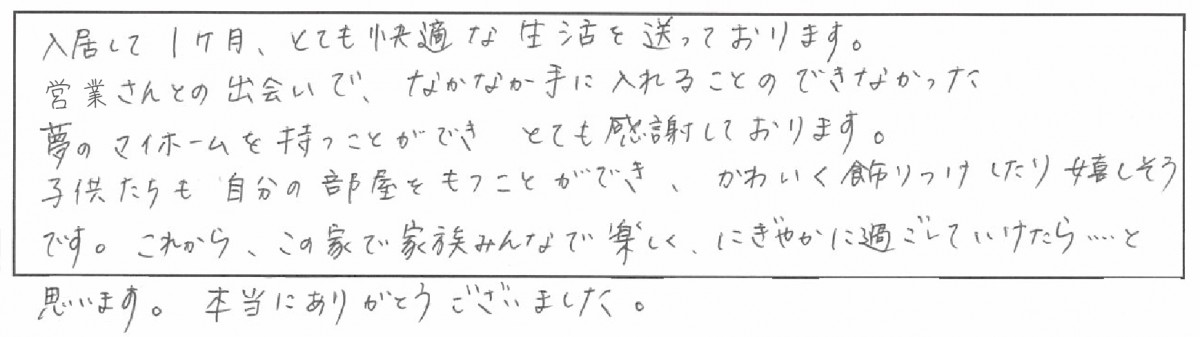 入居して1ケ月、とても快適な生活を送っております。
営業さんとの出会いで、なかなか手に入れることのできなかった
夢のマイホームを持つことができ とても感謝しております。
子供たちも自分の部屋をもつことができ、かわいく飾りつけしたり嬉しそう
です。これから、この家で家族みんなで楽しく、にぎやかに過ごしていけたら……と
思います。本当にありがとうございました。